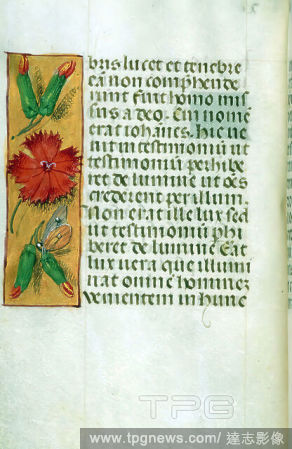 bris lucet et tenebre
eã non comp̃hende
runt Fuit homo mis
sus a deo. Cui nomẽ
erat iohãnes. Hic ve
nit in testimoniũ ut
testimoniũ perhibe
ret de lumine ut oẽs
crederent per illum.
Non erat ille lux sed
ut testimoniũ phi
beret de lumine Erat
lux vera que illumi
nat omnẽ hominez
venientem in hunc
TPG
www.tpgnews.com / 達志影像